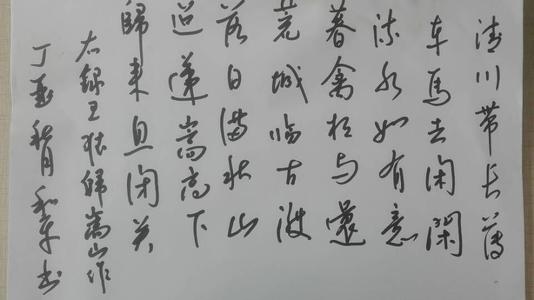 清川带长薄
车马去闲闲
流水如有意
暮禽相与还
荒城临古渡
落日满秋山
迢递嵩高下
归来且闭关
右录王维归嵩山作
丁亥秋月和平书